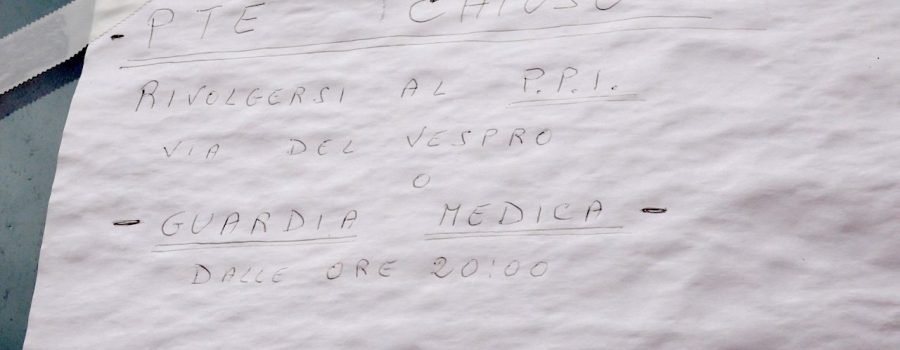 - PTE CHIUSO
RIVOLGERSI AL P.P.I.
VIA DEL VESPRO
O
- GUARDIA MEDICA -
DALLE ORE 20:00